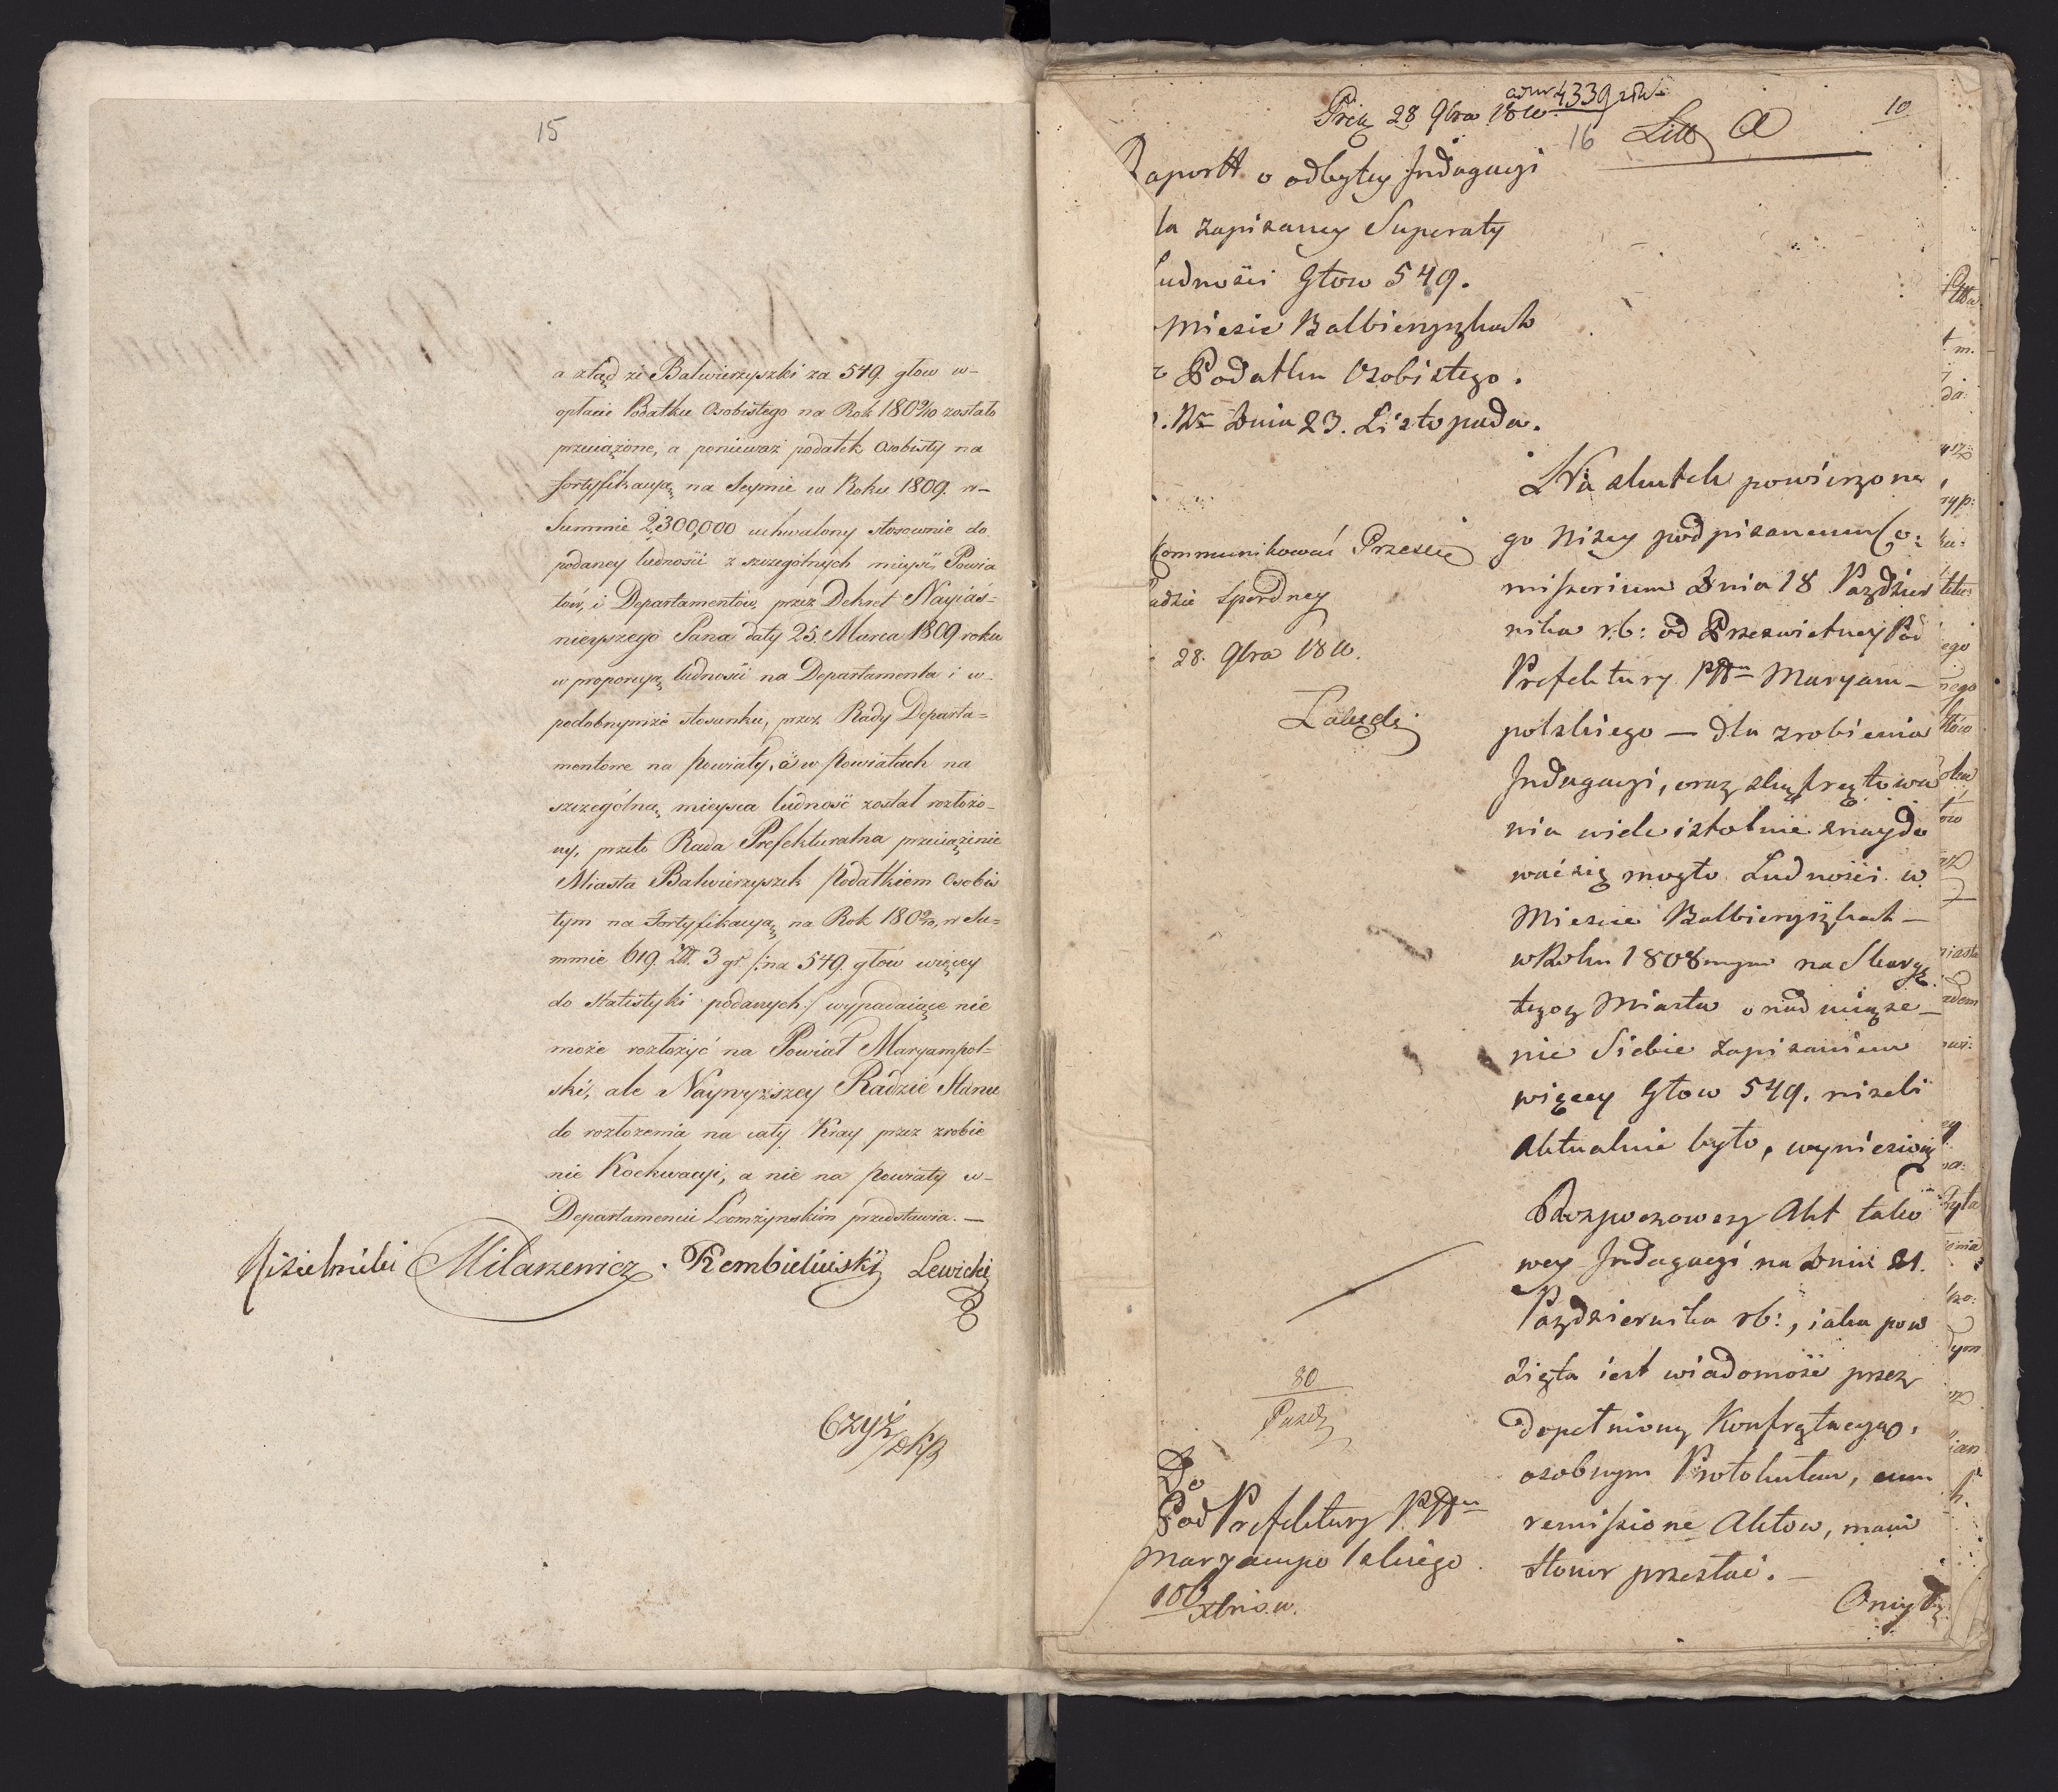 15
a ztąd że Balwierzyszki za 549. głow w-
opłacie Podatku Osobistego na Rok 1809/10 zostało
przeciążone, a ponieważ podatek Osobisty na
fortyfikacyą na Seymie w Roku 1809. w-
Summie 2,300,000 uchwalony stosownie do
podaney ludności z szczególnych mieysc, Powia
tów, i Departamentów, przez Dekret Nayiaś-
nieyszego Pana daty 25. Marca 1809 roku
w proporcyą ludności na Departamenta i w-
podobnymże stosunku, przez Rady Departa=
mentowe na powiaty, a w Powiatach na
szczególną mieysca ludność został rozłożo-
ny, przeto Rada Prefekturalna przeciążenie
Miasta Balwierzyszek Podatkiem Osobis
tym na Fortyfikacyą na Rok 1809/10, w Su=
mmie 619. Zł. 3 gr. /: na 549. głów więcey
do Statistyki podanych :/ wypadaiące nie
może rozłożyć na Powiat Maryampol-
ski, ale Naywyższey Radzie Stanu
do rozłożenia na cały Kray przez zrobie
nie Koekwacyi, a nie na powiaty w-
Departamencie Łomżyńskim przedstawia. —
Kisielnicki Milarzewicz. Rembieliński Lewicki
Czyż
10
4339
28 9bra 1810.
16 Litt A
Raportt o odbytey Indagacyi
la zapisaney Superaty
Ludności Głow 549.
Miescie Balbierzyszkach
z Podatku Osobistego.
Dnia 23. Listopada.
Kommunikować Przeswie
28. 9bra 1810.
Na skutek powierzone
go niżey podpisanemu Co:
missorium Dnia 18 Pazdzier
nika r.b: od Przeswietney Pod
Prefektury Pttu Maryam-
polskiego — dla zrobienia
Indagacyi, oraz skąfrątowa
nia wiele istotnie znaydo
wać się mogło Ludności w
Miescie Balbierzyszkach —
w Roku 1808mym na Skargę
tegoż Miasta o nadwiąże_
nie Siebie zapisaniem
więcey Głow 549. niżeli
aktualnie było, wyniesioną
Rozpoczowszy Akt tako
wey Indagacyi na Dniu 21.
Pazdziernika rb:, iaka pow
zięta iest wiadomość przez
dopełnioną Konfrątacyą,
osobnym Protokułem, cum
remissione Aktow, mam
Honor przesłać. —
80
Pazd
Do
Pod Prefektury Pttu
Maryampolskiego
106